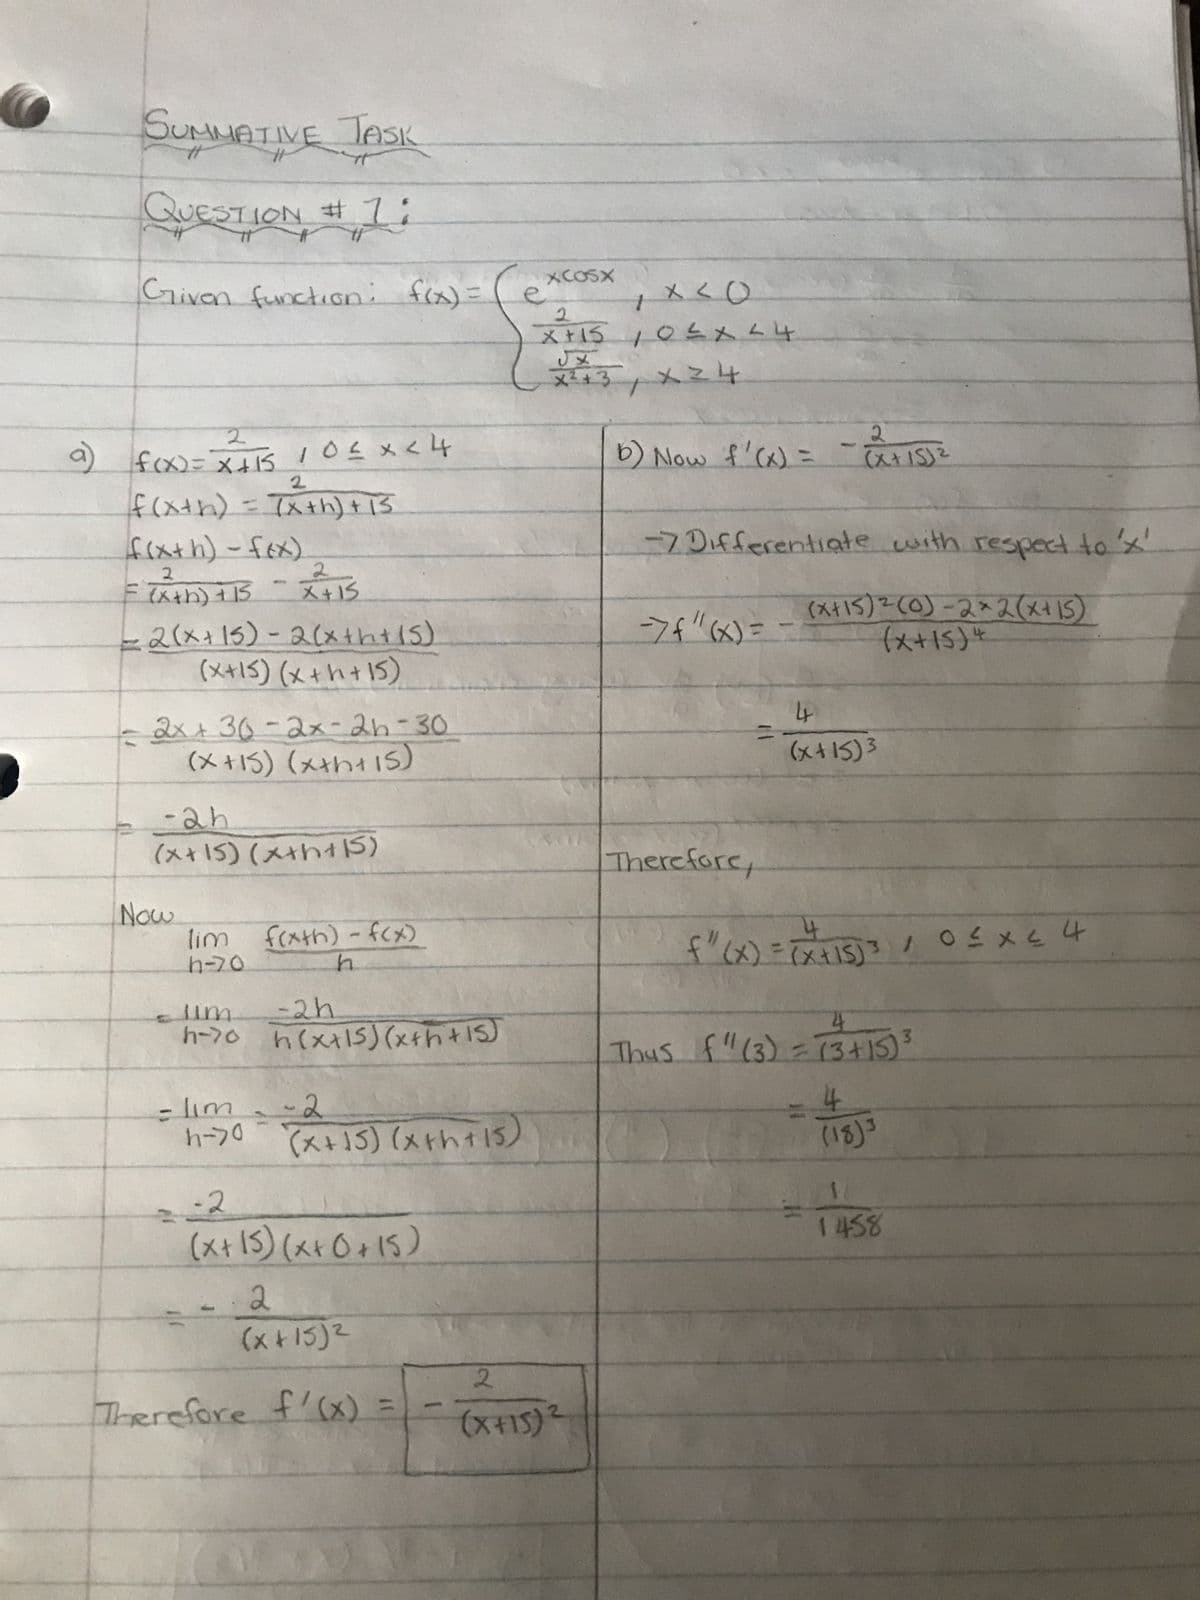 SUMMATIVE TASK
QUESTION # 1:
Given function: f(x) = { e^xcosx , x < 0
2/x+15 , 0 ≤ x < 4
√x/x²+3 , x ≥ 4
a) f(x) = 2/x+15 , 0 ≤ x < 4
f(x+h) = 2/(x+h)+15
f(x+h) - f(x)
= 2/(x+h)+15 - 2/x+15
= 2(x+15) - 2(x+h+15)
(x+15)(x+h+15)
= 2x + 30 - 2x - 2h - 30
(x+15) (x+h+15)
= -2h
(x+15)(x+h+15)
Now
lim f(x+h) - f(x)
h->0 h
= lim -2h
h->0 h(x+15)(x+h+15)
= lim = -2
h->0 (x+15)(x+h+15)
= -2
(x+15)(x+0+15)
= - 2
(x+15)²
Therefore f'(x) = - 2/(x+15)²
b) Now f'(x) = - 2/(x+15)²
-> Differentiate with respect to 'x'
-> f''(x) = - (x+15)²(0) - 2×2(x+15)
(x+15)⁴
= 4
(x+15)³
Therefore,
f''(x) = 4/(x+15)³ , 0 ≤ x ≤ 4
Thus f''(3) = 4/(3+15)³
= 4
(18)³
= 1
1458